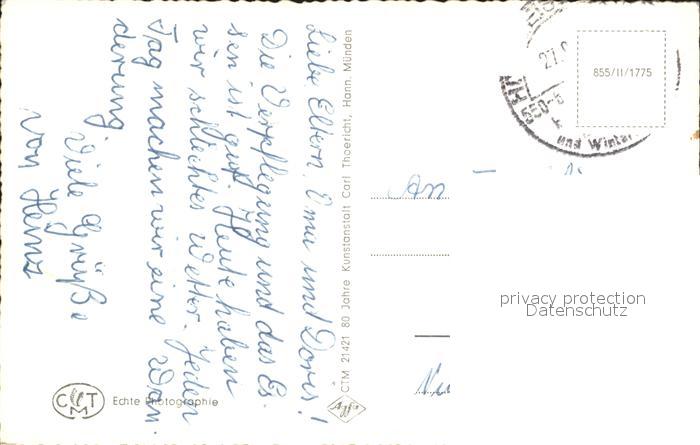 Liebe Eltern, Oma und Doris!
Die Verpflegung und das Es-
sen ist gut. Heute haben
wir schlechtes Wetter. Jeden
Tag machen wir eine Wan-
derung
Viele Grüße
von Heinz
CTM 21421 80 Jahre Kunstanstalt Carl Thoericht, Hann. Münden
Agfa
CTM
Echte Photographie
27.
und Winter
855/II/1775
An
privacy protection
Datenschutz